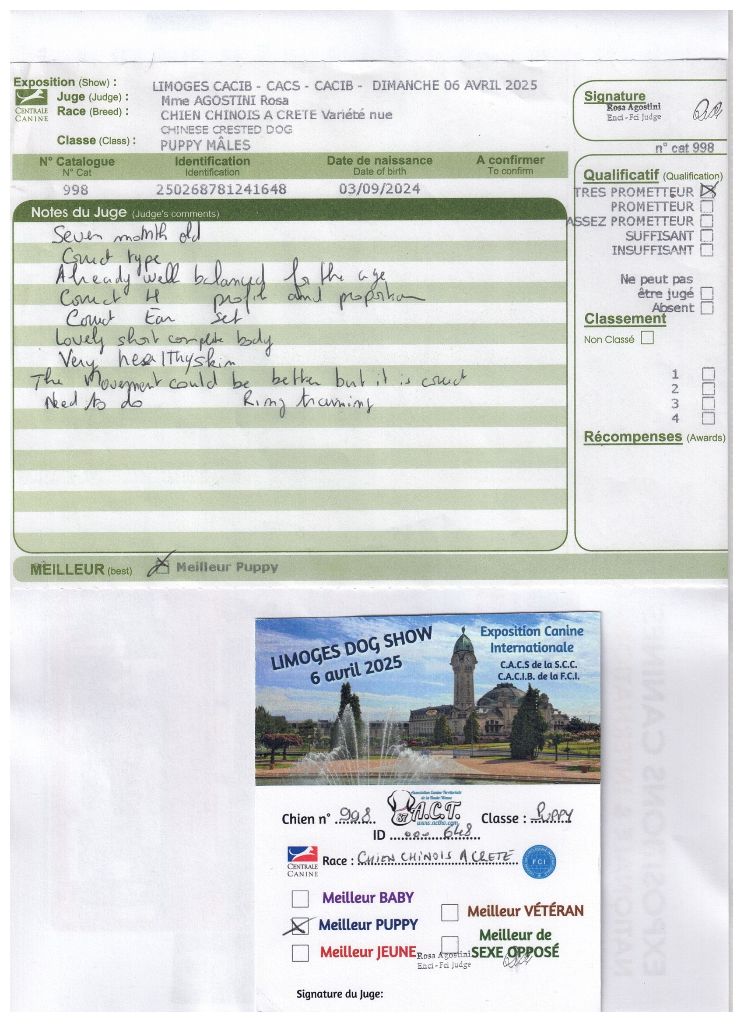 Exposition (Show) : LIMOGES CACIB - CACS - CACIB - DIMANCHE 06 AVRIL 2025
Juge (Judge) : Mme AGOSTINI Rosa
Race (Breed) : CHIEN CHINOIS A CRETE Variété nue
CHINESE CRESTED DOG
CENTRALE
CANINE
Classe (Class) : PUPPY MÂLES
Signature
Rosa Agostini
Enci-Fci Judge
n° cat 998
N° Catalogue Identification Date de naissance A confirmer
N° Cat Identification Date of birth To confirm
998 250268781241648 03/09/2024
Notes du Juge (Judge's comments)
Seven month old
Correct type
Already well balanced for the age
Correct H profil and proportion
Correct Ear Set
Lovely short complete body
Very healthy skin
The Movement could be better but it is correct
Need to do Ring training
Qualificatif (Qualification)
TRES PROMETTEUR
PROMETTEUR
ASSEZ PROMETTEUR
SUFFISANT
INSUFFISANT
Ne peut pas
être jugé
Absent
Classement
Non Classé
1
2
3
4
Récompenses (Awards)
MEILLEUR (best) Meilleur Puppy
LIMOGES DOG SHOW
6 avril 2025
Exposition Canine
Internationale
C.A.C.S de la S.C.C.
C.A.C.I.B. de la F.C.I.
Association Canine Territoriale
de la Haute-Vienne
Chien n° 998 87 A.C.T. Classe : PUPPY
ID 648
CENTRALE
CANINE
Race : CHIEN CHINOIS A CRETE
FCI
Meilleur BABY
Meilleur PUPPY
Meilleur VÉTÉRAN
Meilleur JEUNE
Meilleur de
SEXE OPPOSÉ
Rosa Agostini
Enci-Fci Judge
Signature du Juge: